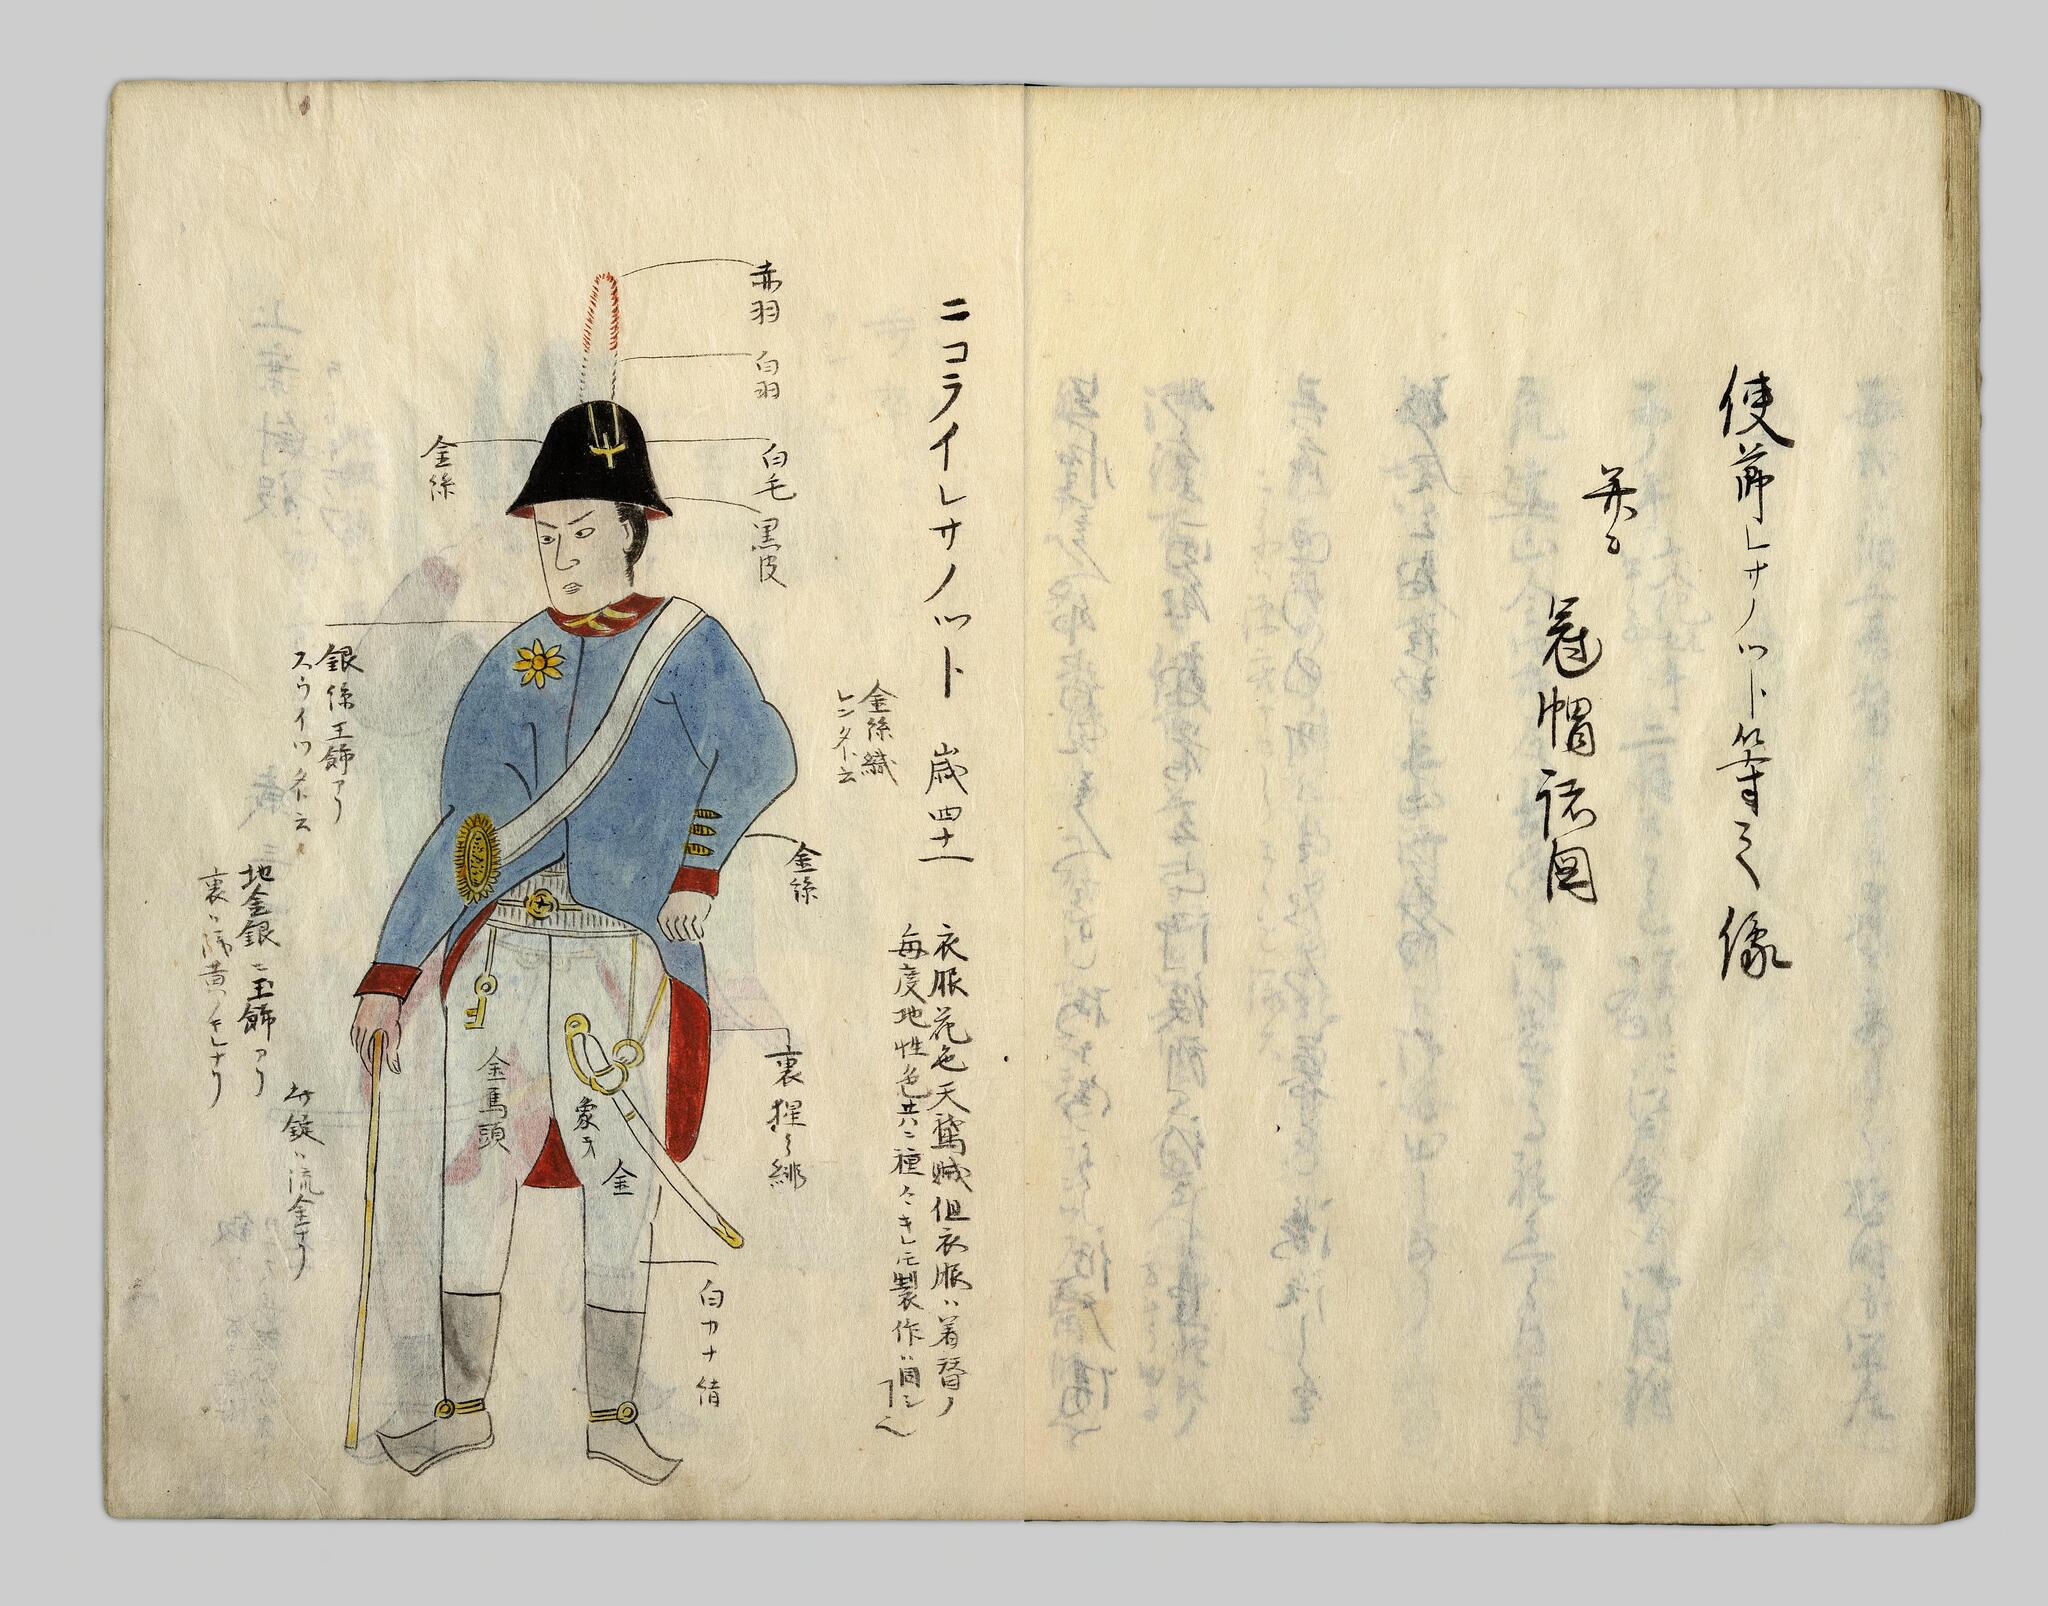 使節レサノット等之像
并ニ
冠帽諸図
ニコライレサノット 歳四十一
衣服花色天鵞絨但衣服ハ着替ノ
毎度地性色共ニ種々キレ𪜈製作ハ同シ
赤羽
白羽
白毛
黒皮
金絲
金絲織
レンタト云
金絲
裏猩々緋
白カナ
銀絲玉飾アリ
スウイツタト云
地金銀ニ玉飾アリ
裏ハ
黄ノキレナリ
錠ハ流金ナリ
金馬頭
象牙
金